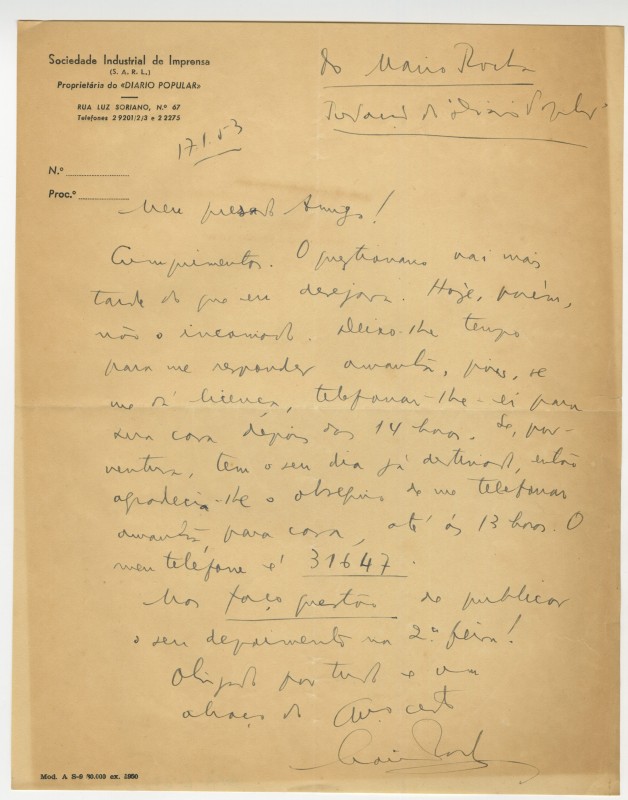 Sociedade Industrial de Imprensa
(S. A. R. L.)
Proprietária do «DIARIO POPULAR»
RUA LUZ SORIANO, N.º 67
Telefones 2 9201/2/3 e 2 2275
do Mario Rocha
Redacção do "Diario Popular"
17.1.53
N.º
Proc.º
Meu prezado Amigo!
Cumprimentos. O questionario vai mais
tarde do que eu desejava. Hoje, porém,
não o incomodo. Deixo-lhe tempo
para me responder amanhã, pois, se
me dá licença, telefonar-lhe-ei para
sua casa depois das 14 horas. Se, por-
ventura, tem o seu dia já destinado, então
agradecia-lhe o obséquio de me telefonar
amanhã, para casa, até ás 13 horas. O
meu teléfone é 31647.
Mas faço questão de publicar
o seu depoimento na 2.ª feira!
Obrigado por tudo e um
abraço do
Mario Rocha
Mod. A S-9 30.000 ex. 1950